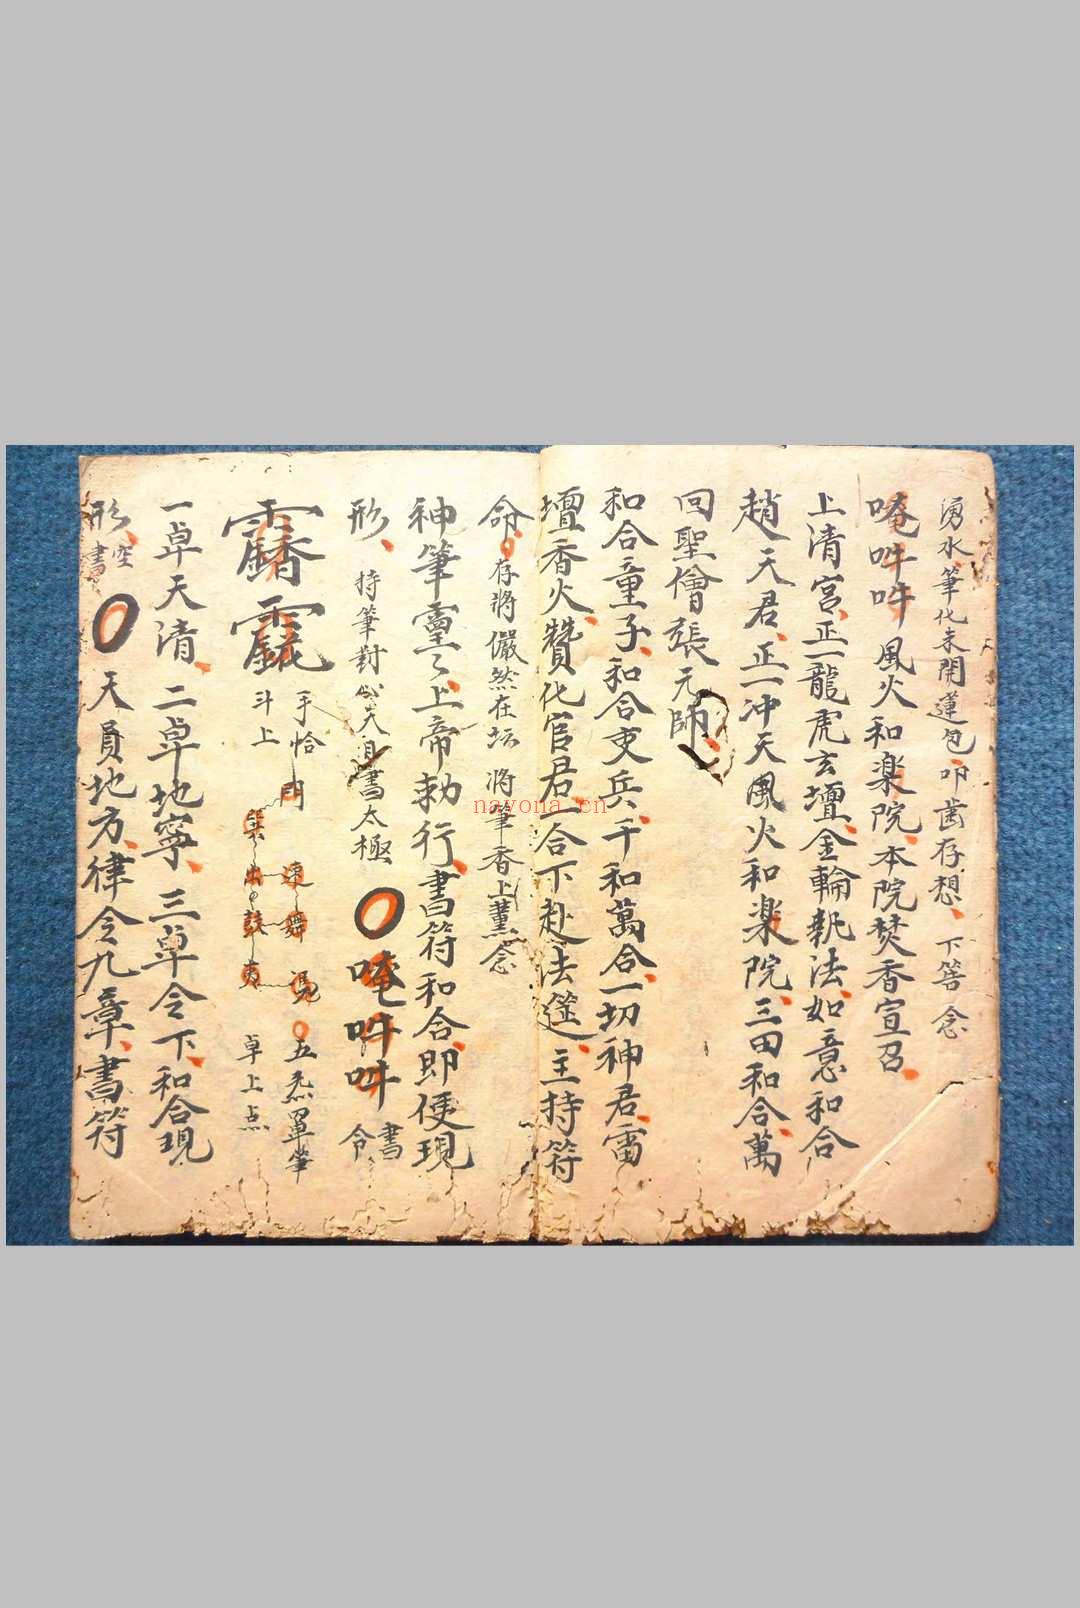 湧水筆化未開蓮包叩齒存想、下筶念
唵吽吽風火和楽院、本院焚香宣召、
上清宮、正一龍虎玄壇、金輪執法、如意和合
趙天君、正一冲天風火和楽院、三田和合萬
回聖僧張元帥、
和合童子、和合吏兵、千和萬合、一切神君、雷
壇香火、贊化官君、一合下赴法筵、主持符
命。存將儼然在坛 將筆香上薰念
神筆靈々、上帝勅行、書符和合、即便現
形、持筆對 天 書太極 〇唵吽吽 書令
手恰 門 速 舞 五炁罩筆
斗上 鼓 卓上点
一卓天清、二卓地寧、三卓令下、和合現
形、空書〇天員地方、律令九章、書符
nayona.cn